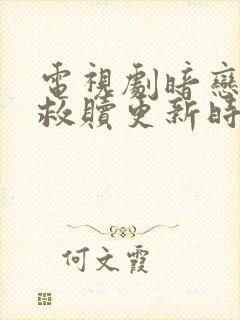 電視劇暗戀
救贖更新時
何文霞